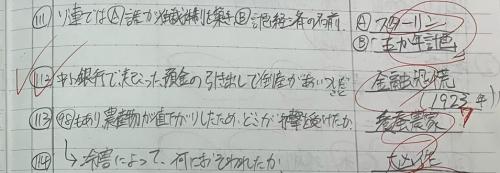 (111) ソ連ではⒶ誰が独裁体制を築きⒷ計画経済の名前 Ⓐスターリン
Ⓑ五か年計画
(112) 中小銀行で起こった預金の引き出しで倒産があいついだこと 金融恐慌
(1927年)
(113) もあり農産物が値下がりしたため、どこが打撃を受けたか 養蚕農家
(114) ↳冷害によって、何におそわれたか 大凶作